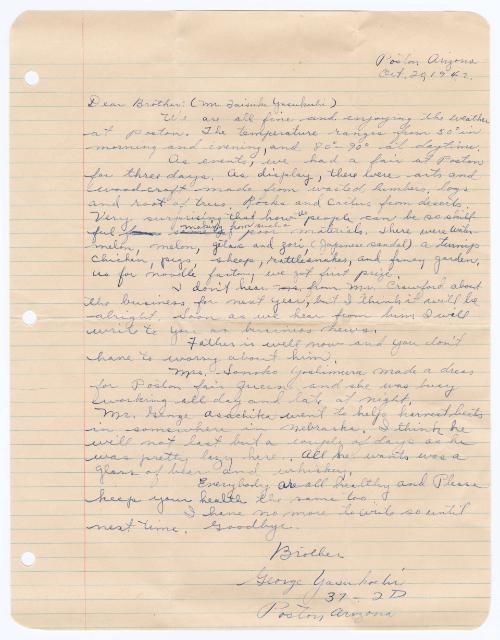 Poston Arizona
Oct. 29, 1942.
Dear Brother: (Mr. Taisuke Yasukochi)
We are all fine and enjoying the weather
at Poston. The temperature ranges from 50° in
morning and evening, and 80°-90° at daytime.
As events, we had a fair at Poston
for three days. As display, there were arts and
woodcraft made from wasted lumbers, logs
and root of trees. Rocks and Cactus from deserts.
Very surprising that how people can be so skill
ful making from such a poor materials. There were water
melon, melon, getas and zori (Japanese sandal) a turnips
chicken, pigs, sheeps, rattlesnakes, and fancy garden.
us for noodle factory, we got first prize.
I don't hear from Mr. Crawford about
the business for next year, but I think it will be
alright. Soon as we hear from him I will
write to you on business news.
Father is well now and you don't
have to worry about him.
Mrs. Yoshimura made a dress
for Poston fair queen and she was busy
working all day and late at night.
Mr. George Asachika went to help harvest beets
in somewhere in Nebraska. I think he
will not last but a couple of days as he
was pretty lazy here. All he wants was a
glass of beer and whiskey.
Everybody are all healthy and Please
keep your health the same too.
I have no more to write so until
next time. Goodbye.
Brother
George Yasukochi
37-2D
Poston Arizona